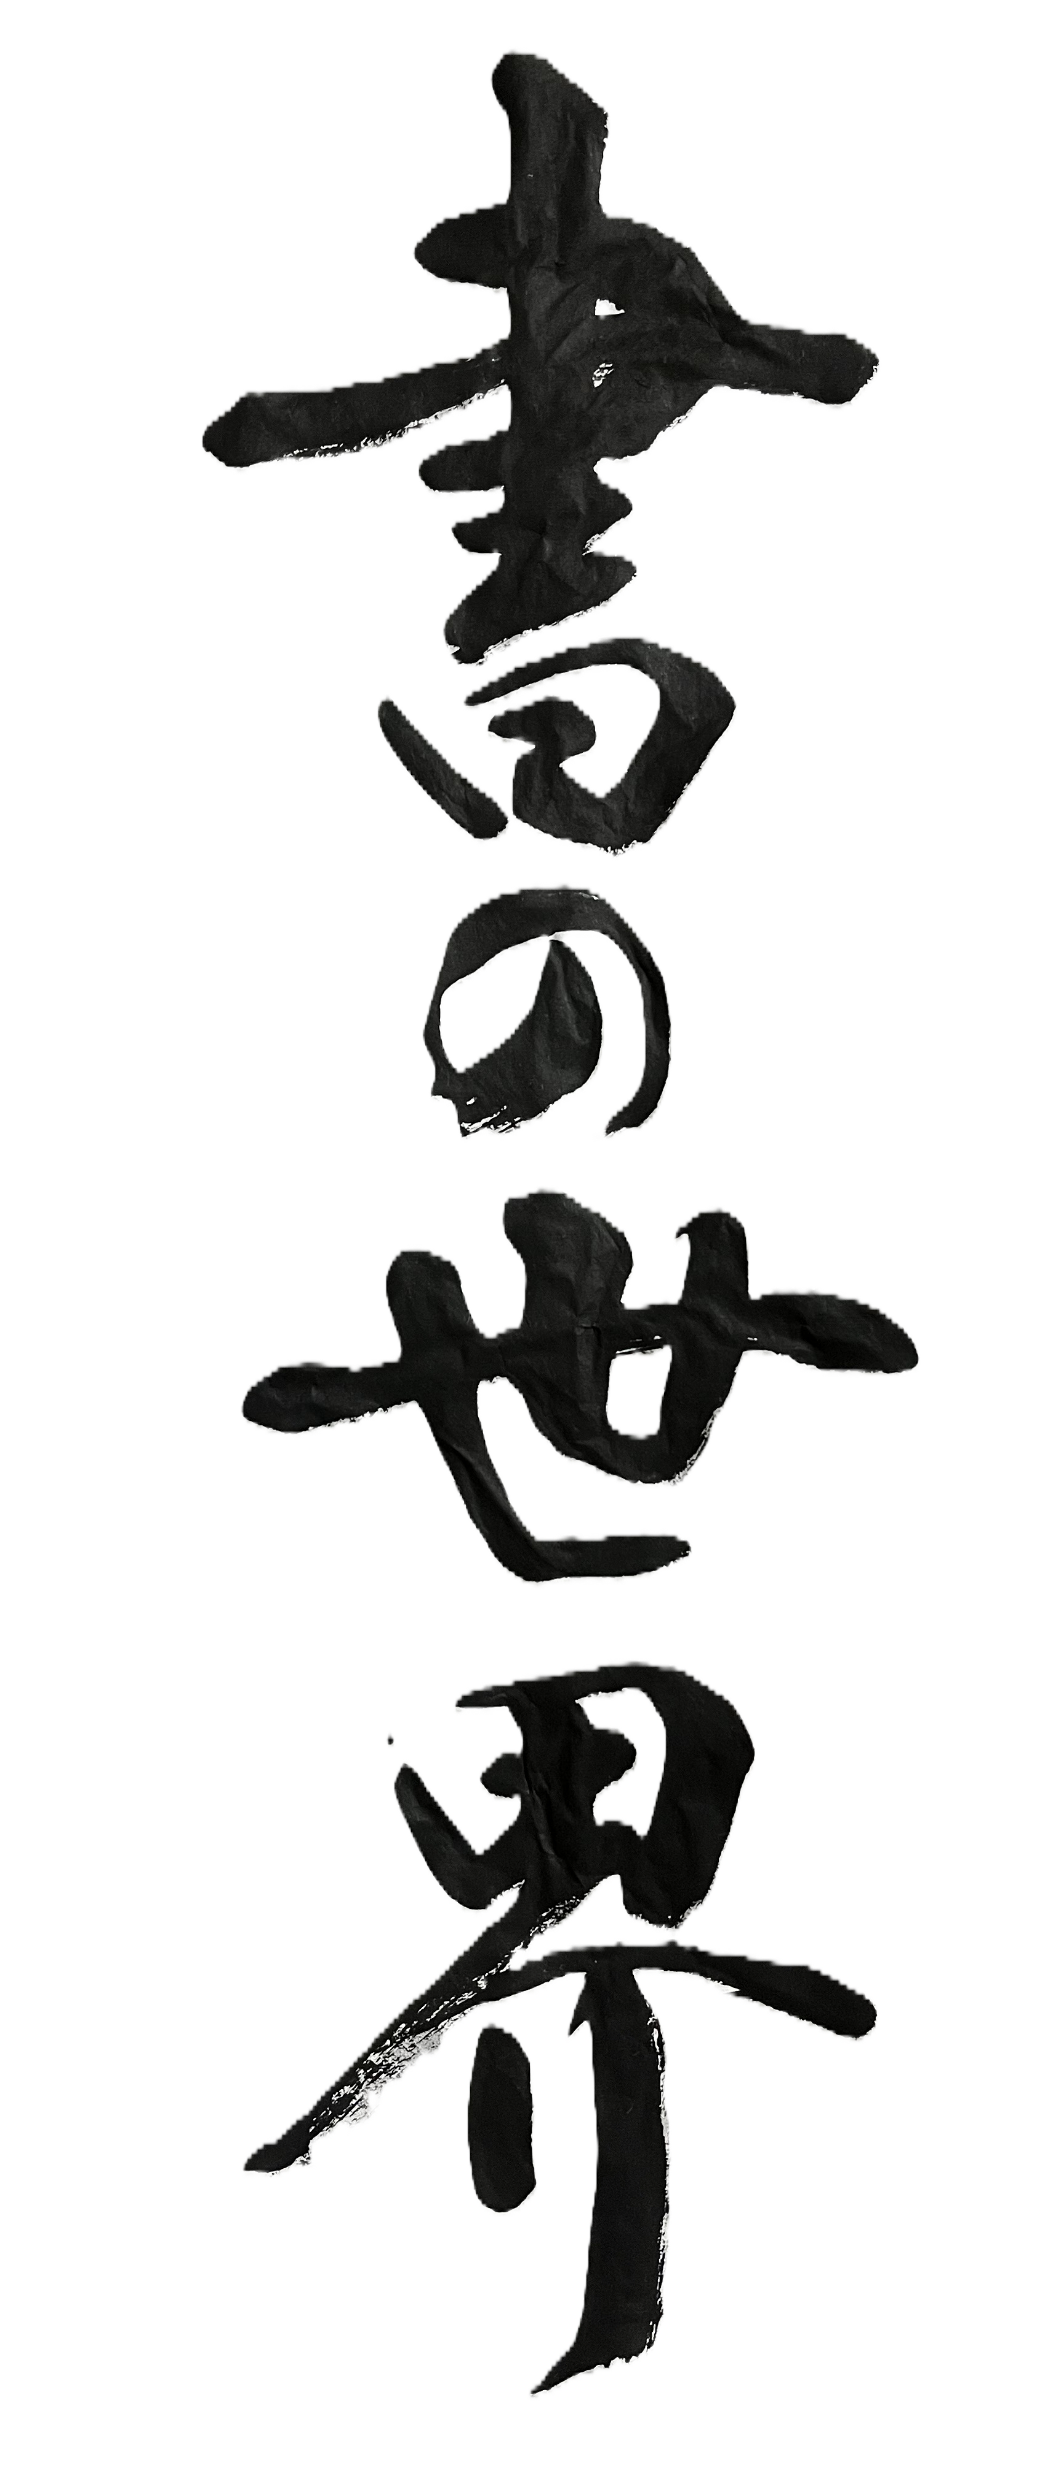 書の世界